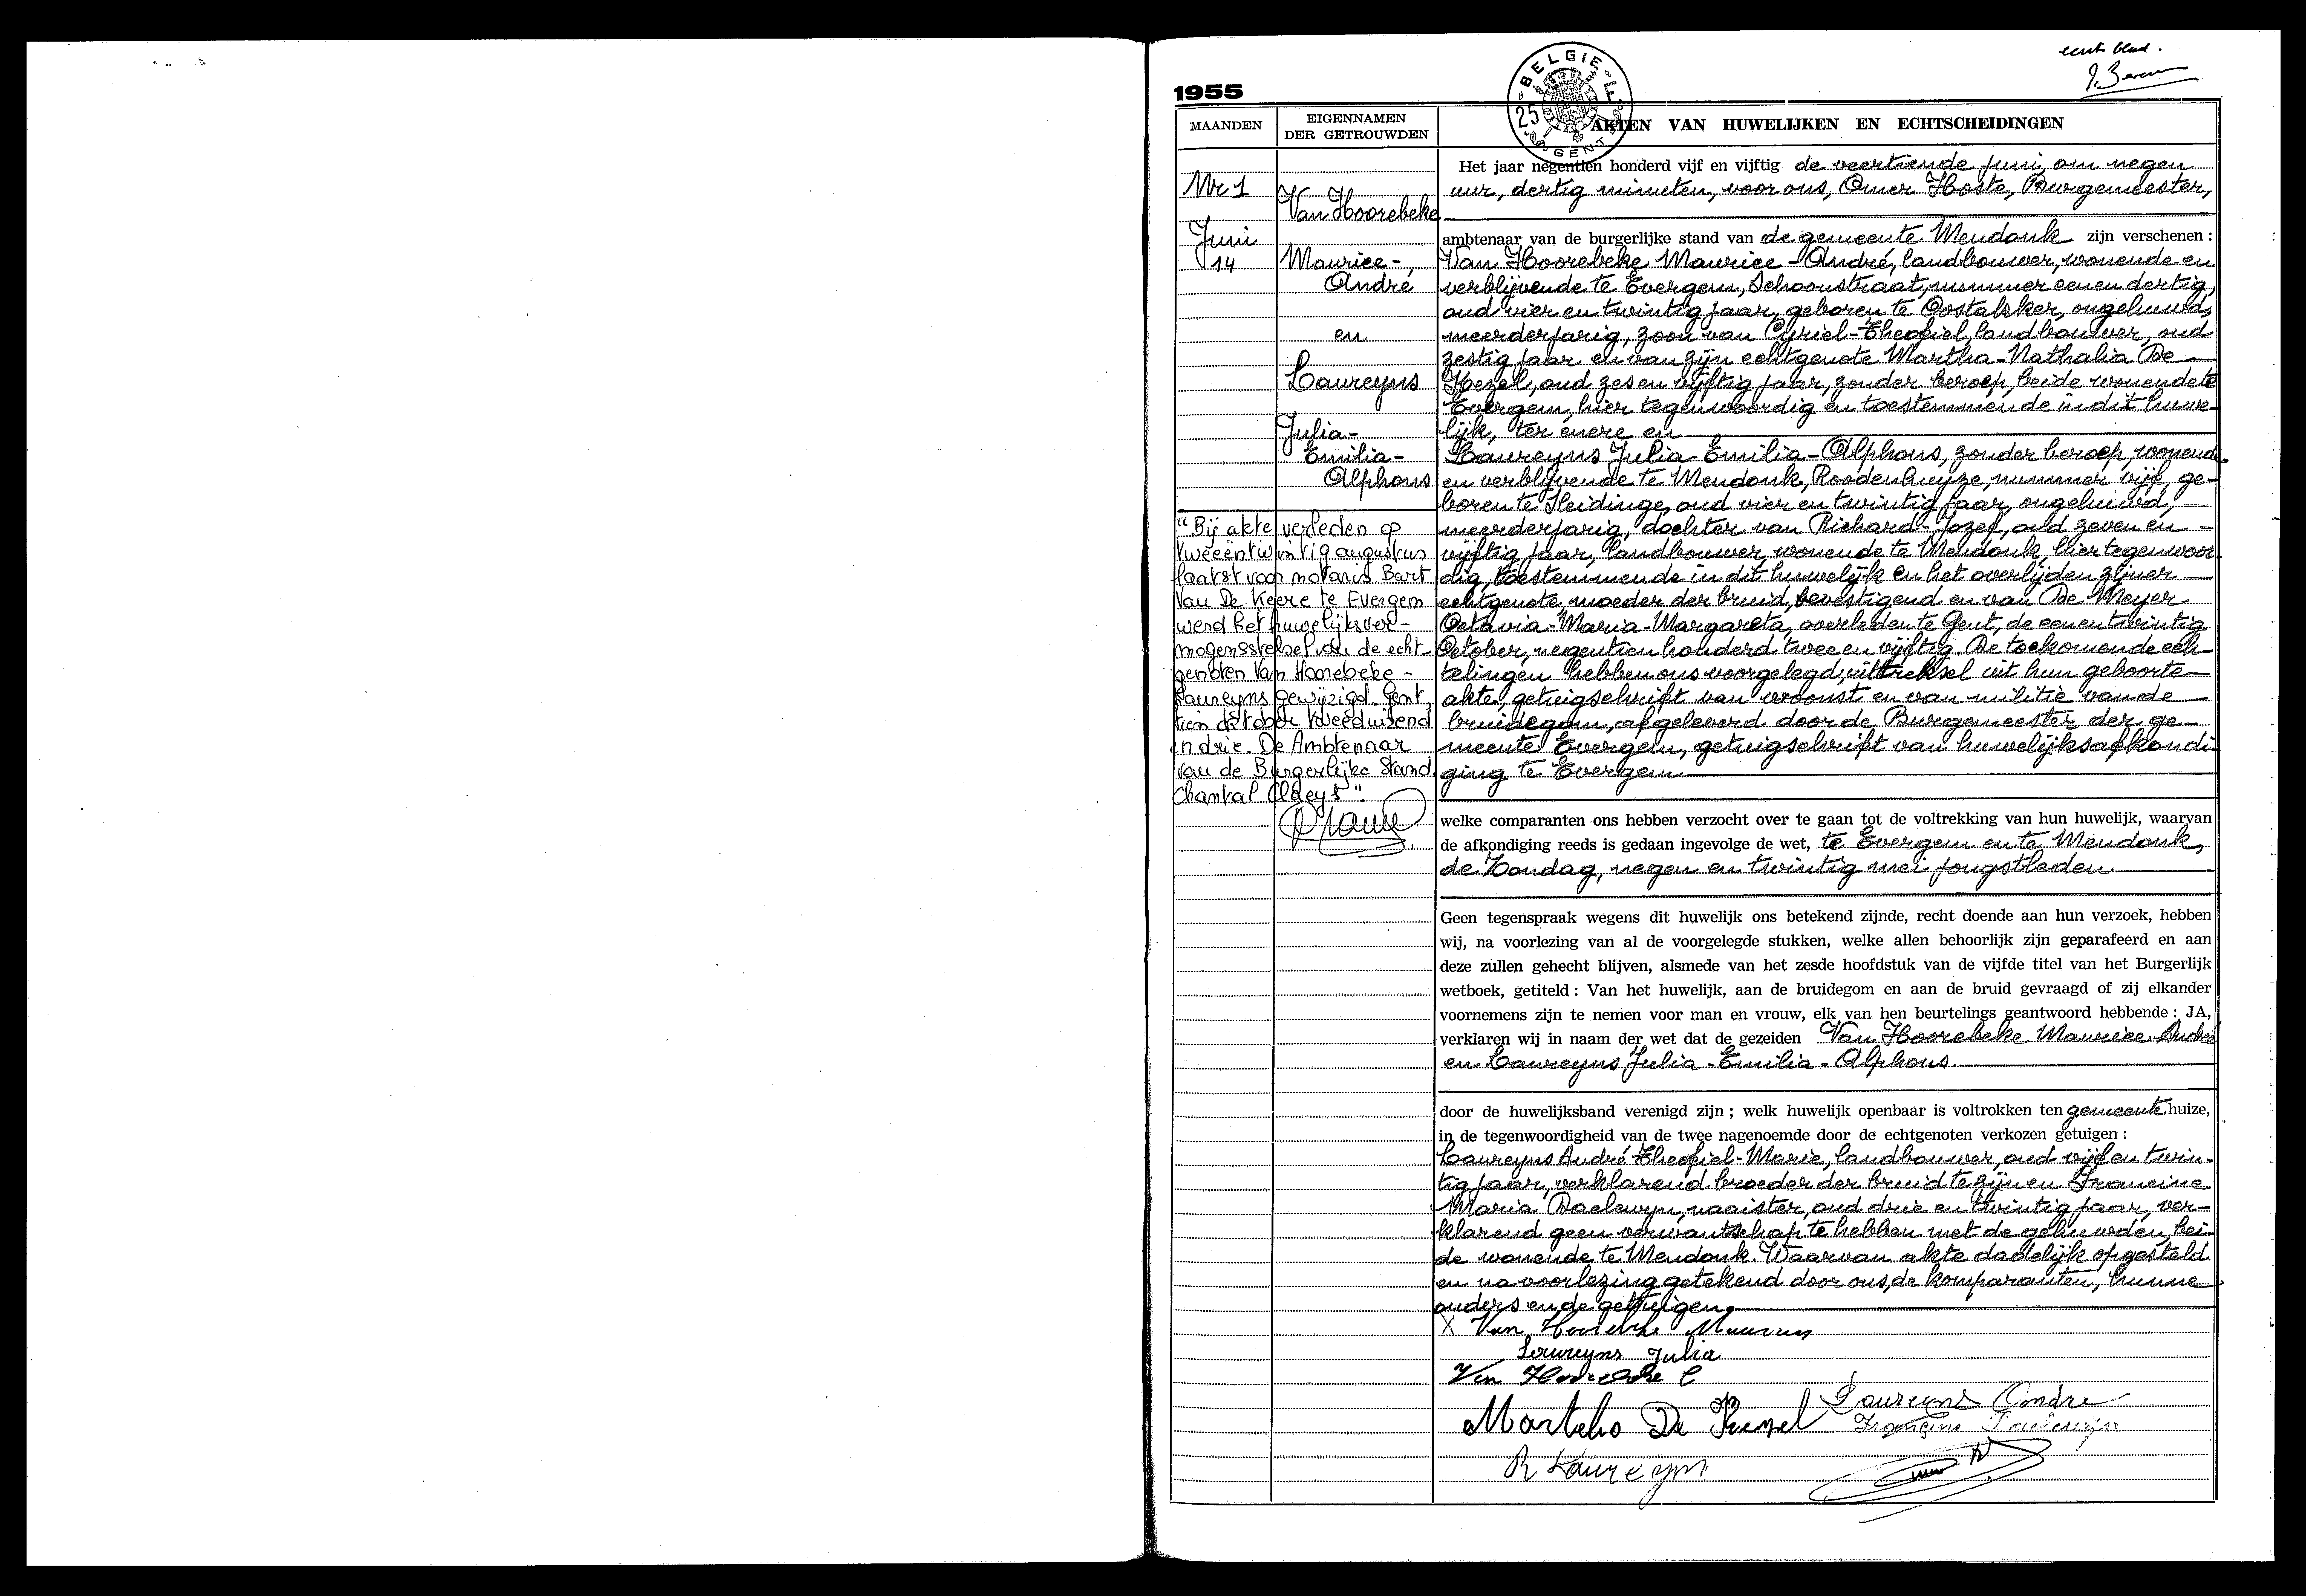 eerste blad.
1955
BELGIE
25
GENT
MAANDEN
EIGENNAMEN
DER GETROUWDEN
AKTEN VAN HUWELIJKEN EN ECHTSCHEIDINGEN
Nr 1
Juni
14
Van Hoorebeke
Maurice-
André
en
Laureyns
Julia-
Emilia-
Alphons
"Bij akte verleden op
tweeëntwintig augustus
laatst voor notaris Bart
Van De Keere te Evergem
werd het huwelijksver-
mogensstelsel van de echt-
genoten Van Hoorebeke -
Laureyns gewijzigd. Gent,
tien oktober tweeduizend
en drie. De Ambtenaar
van de Burgerlijke Stand
Chantal Claeys".
Het jaar negentien honderd vijf en vijftig de veertiende Juni, om negen
uur, dertig minuten, voor ons, Omer Hoste, Burgemeester,
ambtenaar van de burgerlijke stand van de gemeente Mendonk zijn verschenen :
Van Hoorebeke Maurice-André, landbouwer, wonende en
verblijvende te Evergem, Schoonstraat, nummer eenen dertig,
oud vier en twintig jaar, geboren te Oostakker, ongehuwd,
meerderjarig, zoon van Cyriel-Theofiel, landbouwer, oud
zestig jaar en van zijn echtgenote Martha-Nathalia De
Kezel, oud zes en vijftig jaar, zonder beroep, beide wonende te
Evergem, hier tegenwoordig en toestemmende in dit huwe-
lijk, ter enere en
Laureyns Julia-Emilia-Alphons, zonder beroep, wonende
en verblijvende te Mendonk, Roodenhuyze, nummer vijf, ge-
boren te Sleidinge, oud vier en twintig jaar, ongehuwd,
meerderjarig, dochter van Richard-Jozef, oud zeven en
vijftig jaar, landbouwer, wonende te Mendonk, hier tegenwoor
dig, toestemmende in dit huwelijk en het overlijden zijner
echtgenote, moeder der bruid, bevestigend en van De Meyer
Octavia-Maria-Margareta, overleden te Gent, de een en twintig
October, negentien honderd twee en vijftig. De toekomende ech-
telingen hebben ons voorgelegd; uittreksel uit hun geboorte-
akte, getuigschrift van woonst en van militie van de
bruidegom, afgeleverd door de Burgemeester der ge-
meente Evergem, getuigschrift van huwelijksafkondi-
ging te Evergem
welke comparanten ons hebben verzocht over te gaan tot de voltrekking van hun huwelijk, waarvan
de afkondiging reeds is gedaan ingevolge de wet, te Evergem en te Mendonk,
de Zondag, negen en twintig mei jongstleden.
Geen tegenspraak wegens dit huwelijk ons betekend zijnde, recht doende aan hun verzoek, hebben
wij, na voorlezing van al de voorgelegde stukken, welke allen behoorlijk zijn geparafeerd en aan
deze zullen gehecht blijven, alsmede van het zesde hoofdstuk van de vijfde titel van het Burgerlijk
wetboek, getiteld : Van het huwelijk, aan de bruidegom en aan de bruid gevraagd of zij elkander
voornemens zijn te nemen voor man en vrouw, elk van hen beurtelings geantwoord hebbende : JA,
verklaren wij in naam der wet dat de gezeiden Van Hoorebeke Maurice-André
en Laureyns Julia-Emilia-Alphons.
door de huwelijksband verenigd zijn ; welk huwelijk openbaar is voltrokken ten gemeente huize,
in de tegenwoordigheid van de twee nagenoemde door de echtgenoten verkozen getuigen :
Laureyns André-Theofiel-Marie, landbouwer, oud vijf en twin-
tig jaar, verklarend broeder der bruid te zijn en Francine
Maria Baelewyn, naaister, oud drie en twintig jaar, ver-
klarend geen verwantschap te hebben met de gehuwden, bei-
de wonende te Mendonk. Waarvan akte dadelijk opgesteld
en na voorlezing getekend door ons, de komparanten, hunne
ouders en de getuigen.
X Van Hoorebeke Maurice
Laureyns Julia
Van Hoorebeke C
Laureyns Andre
Martha De Kezel
Francine Baelewyn
R Laureyns